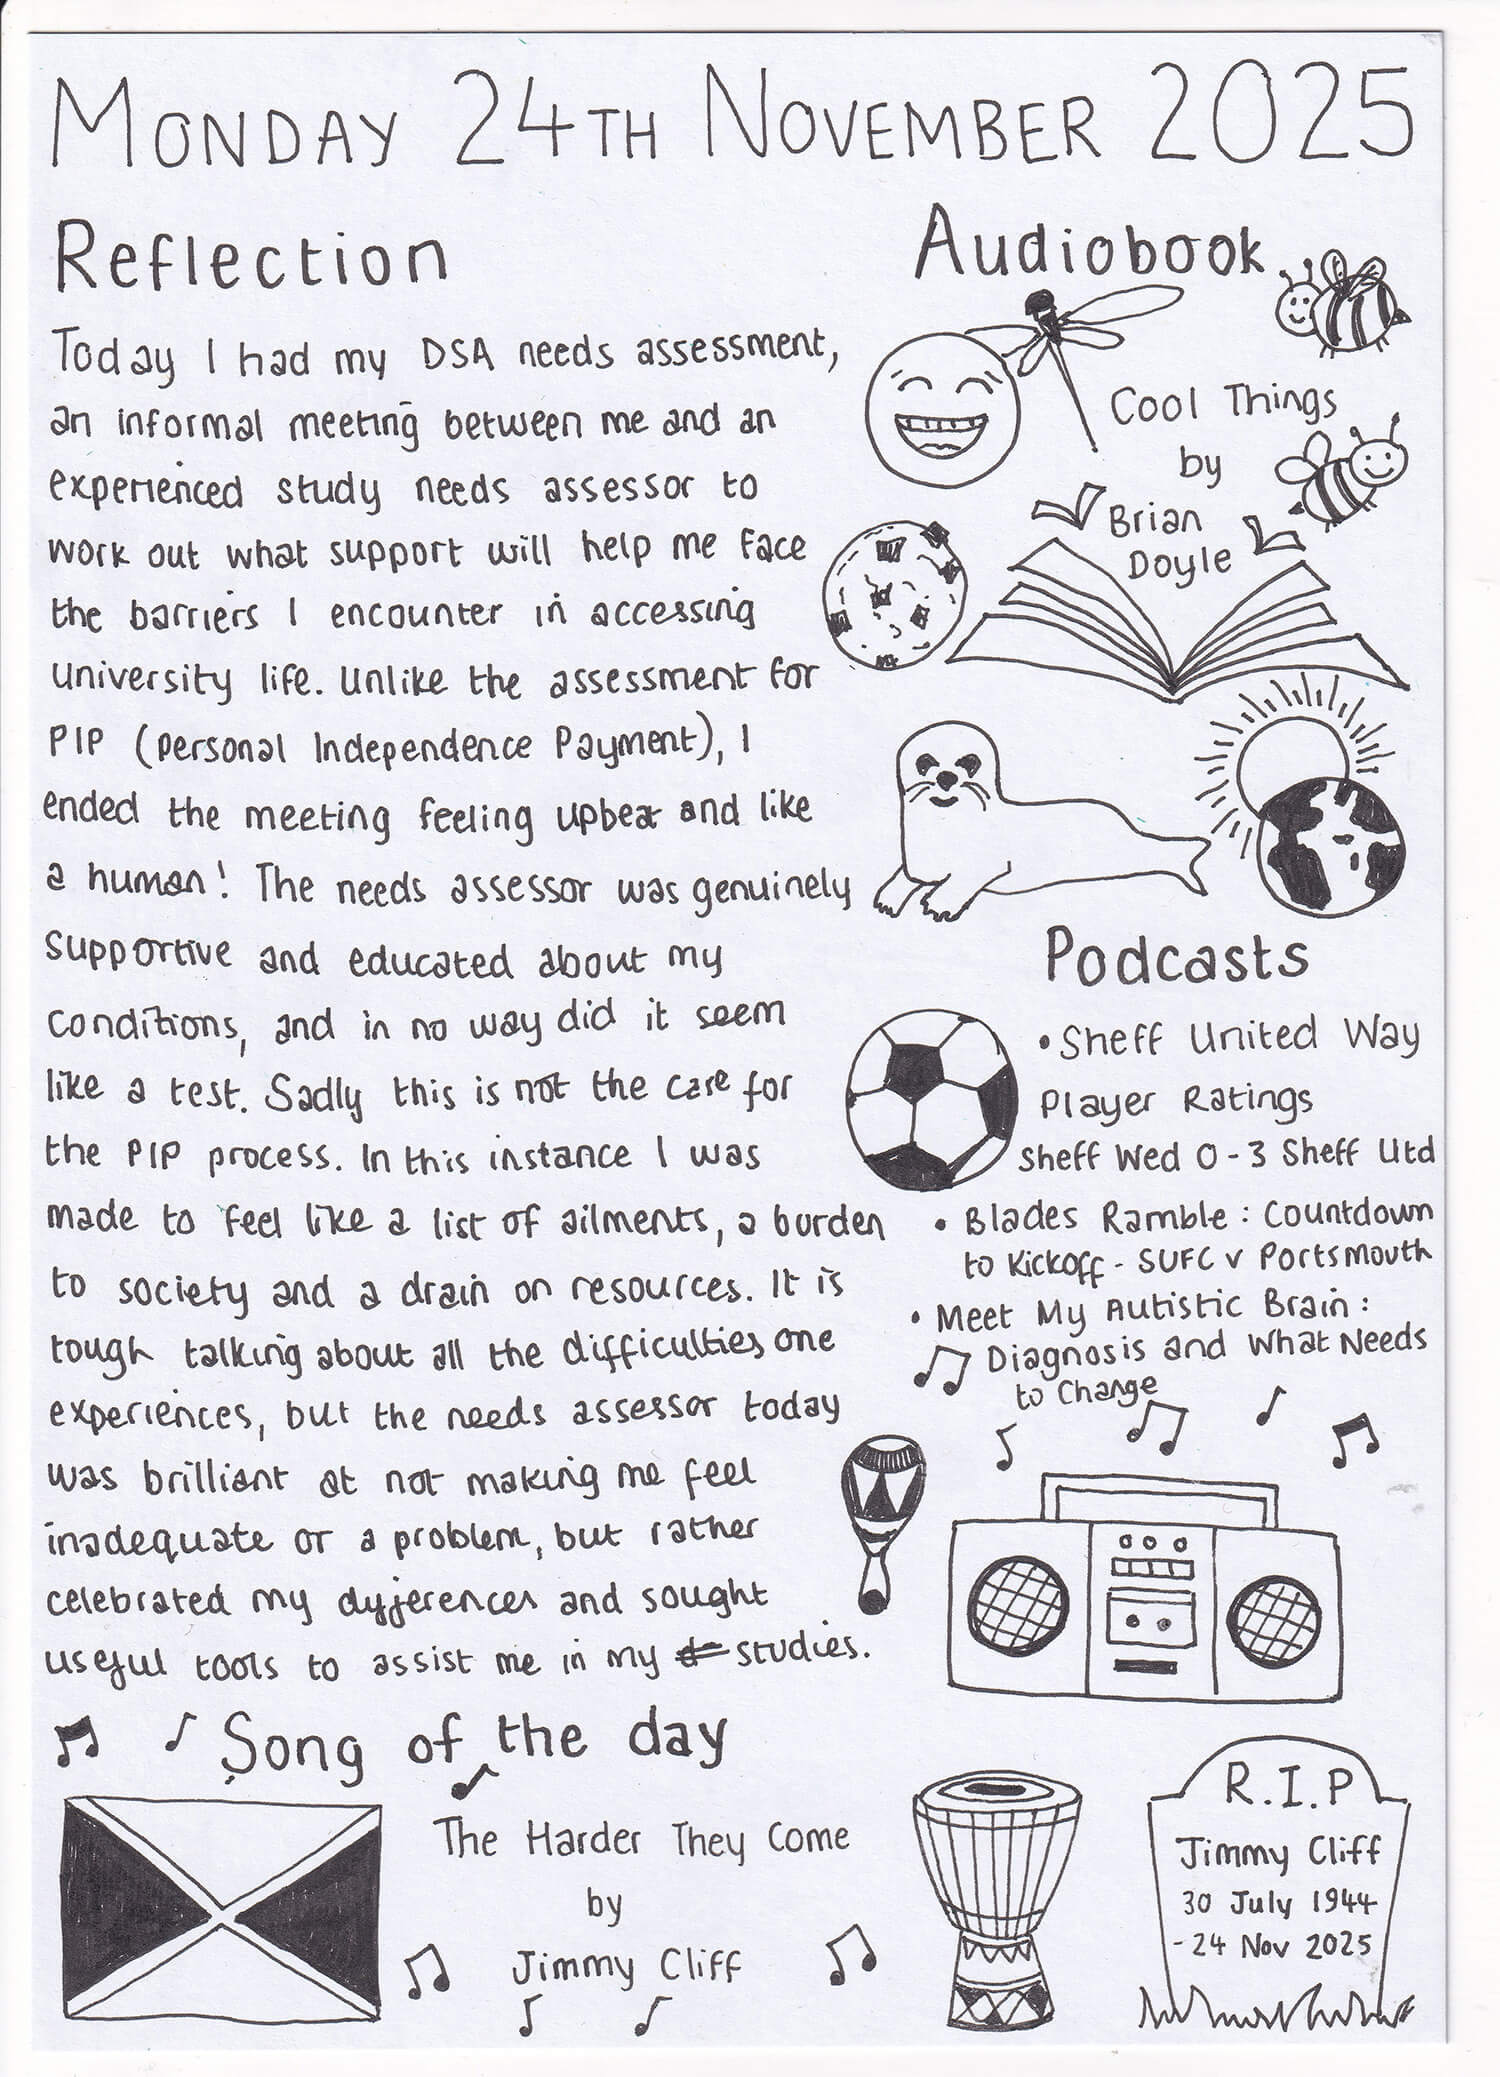 MONDAY 24TH NOVEMBER 2025
Reflection
Today I had my DSA needs assessment,
an informal meeting between me and an
experienced study needs assessor to
work out what support will help me face
the barriers I encounter in accessing
University life. Unlike the assessment for
PIP (Personal Independence Payment), I
ended the meeting feeling upbeat and like
a human! The needs assessor was genuinely
supportive and educated about my
conditions, and in no way did it seem
like a test. Sadly this is not the care for
the PIP process. In this instance I was
made to feel like a list of ailments, a burden
to society and a drain on resources. It is
tough talking about all the difficulties one
experiences, but the needs assessor today
was brilliant at not making me feel
inadequate or a problem, but rather
celebrated my dyferences and sought
useful tools to assist me in my studies.
Audiobook
Cool Things
by
Brian
Doyle
Podcasts
• Sheff United Way
Player Ratings
Sheff Wed 0-3 Sheff Utd
• Blades Ramble: Countdown
to Kickoff - SUFC v Portsmouth
• Meet My Autistic Brain:
Diagnosis and What Needs
to Change
Song of the day
The Harder They Come
by
Jimmy Cliff
R.I.P
Jimmy Cliff
30 July 1944
-24 Nov 2025